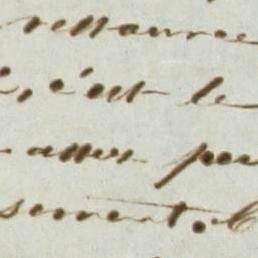 ressource
, c'est le
assez peu
sement. C